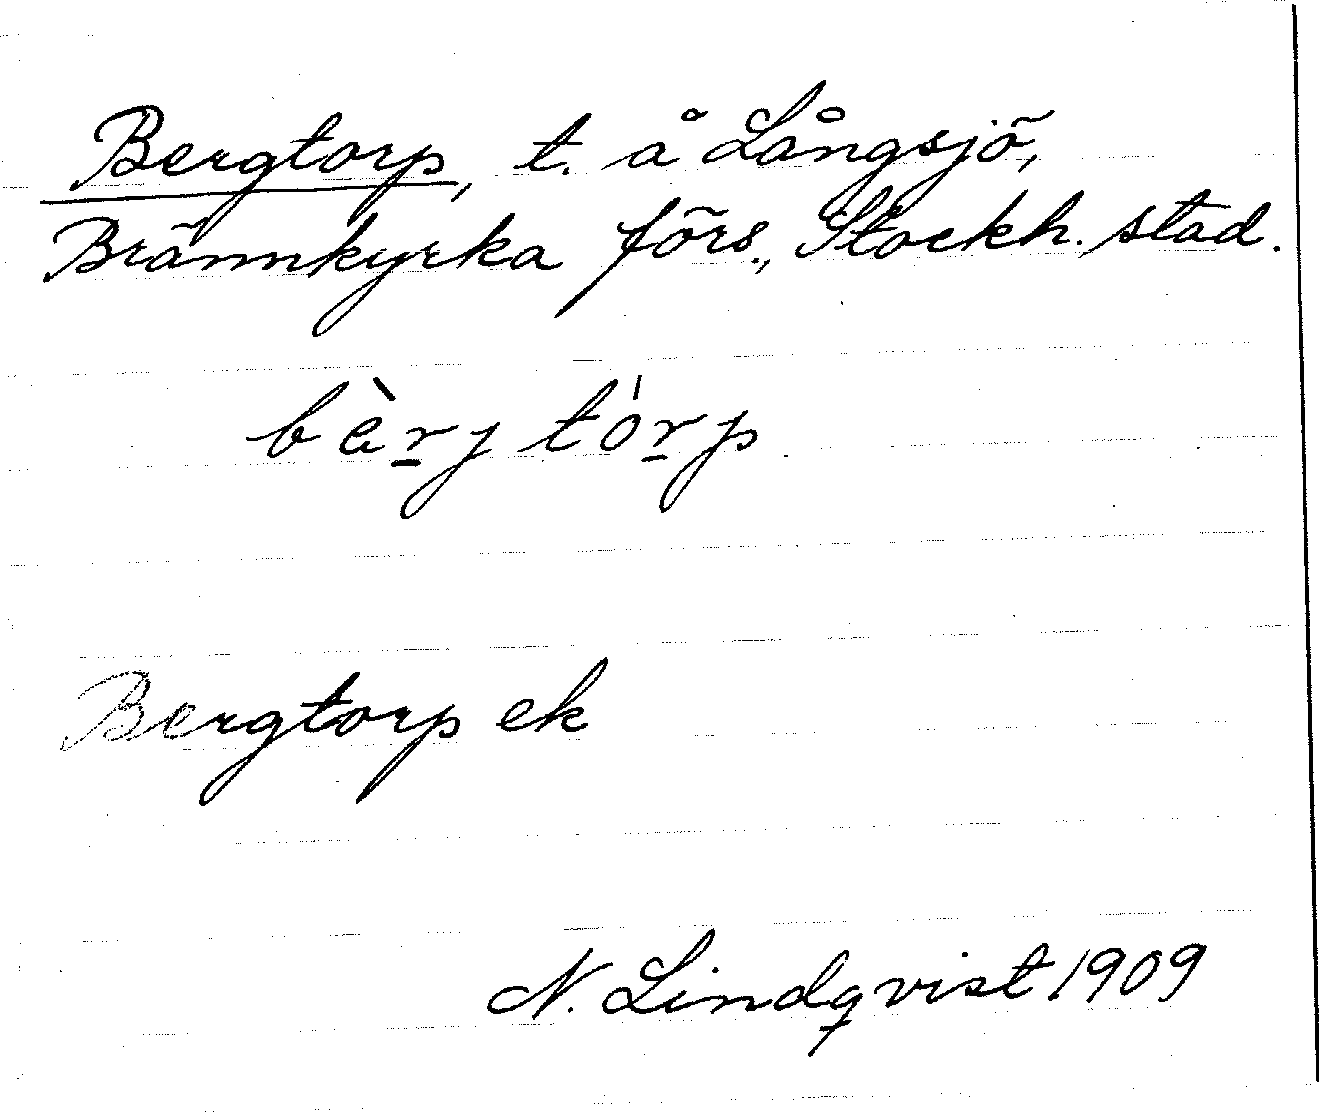 Bergtorp, t. å Långsjö,
Brännkyrka förs., Stockh. stad.
bèrjtórp
Bergtorp ek
N. Lindqvist 1909